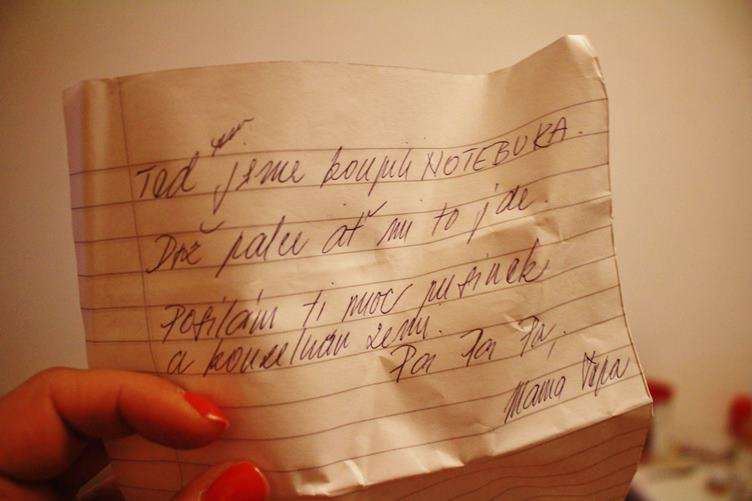 Teď jsme koupili NOTEBUKA.
Drž palce ať mi to jde.
Posílám ti moc pusinek
a kouzelnou zemi.
Pa Pa Pa,
Mama